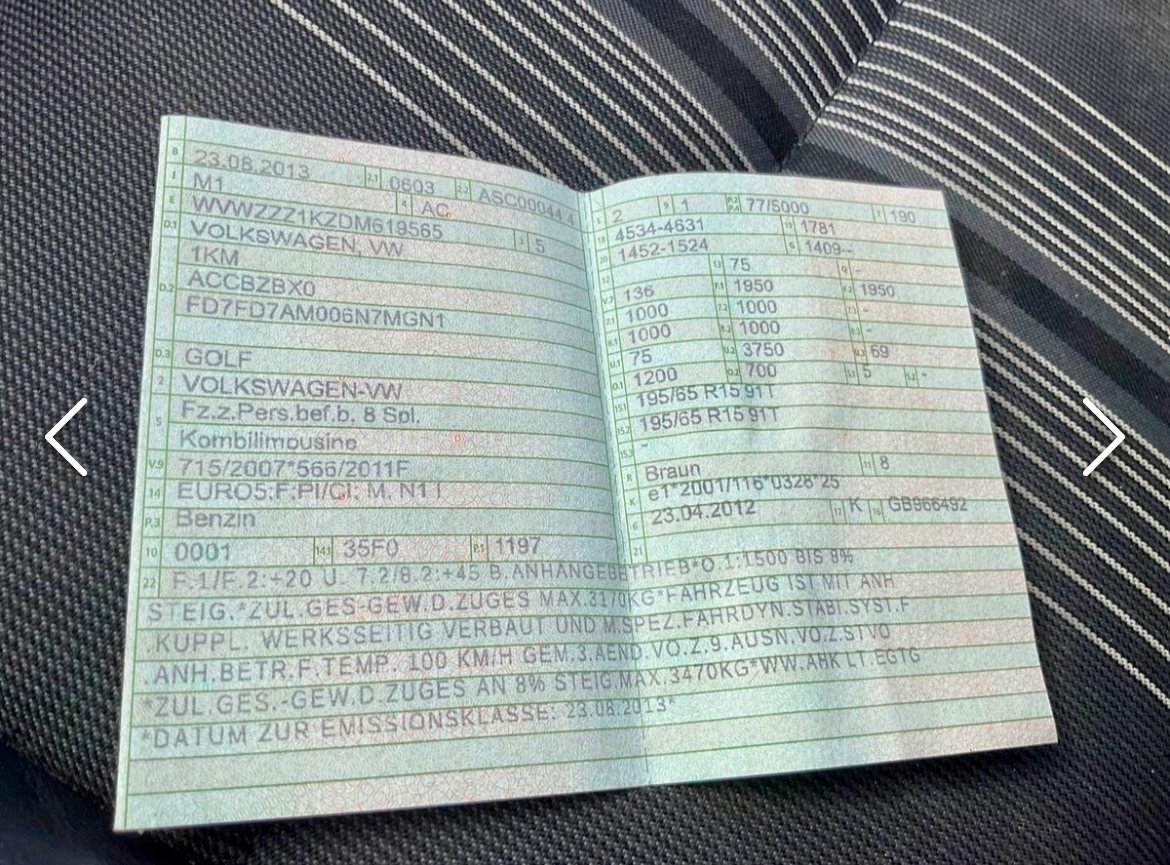 B 23.08.2013 2.1 0603 2.2 ASC00044 4
J M1 4 AC
E WVWZZZ1KZDM619565 3 5
D.1 VOLKSWAGEN, VW
1KM
D.2 ACCBZBX0
FD7FD7AM006N7MGN1
D.3 GOLF
2 VOLKSWAGEN-VW
5 Fz.z.Pers.bef.b. 8 Spl.
Kombilimousine
V.9 715/2007*566/2011F
14 EURO5;F;PI/CI; M, N1 I
P.3 Benzin
10 0001 14.1 35F0 P.1 1197
L 2 9 1 P.2 P.4 77/5000 T 190
18 4534-4631 19 1781
20 1452-1524 G 1409--
12 13 75 Q -
V.7 136 F.1 1950 F.2 1950
7.1 1000 7.2 1000 7.3 -
8.1 1000 8.2 1000 8.3 -
U.1 75 U.2 3750 U.3 69
O.1 1200 O.2 700 S.1 5 S.2 -
15.1 195/65 R15 91T
15.2 195/65 R15 91T
15.3 -
R Braun 11 8
K e1*2001/116*0328*25
6 23.04.2012 17 K 16 GB966492
21
22 F.1/F.2:+20 U. 7.2/8.2:+45 B.ANHANGEBETRIEB*O.1:1500 BIS 8%
STEIG.*ZUL.GES-GEW.D.ZUGES MAX.3170KG*FAHRZEUG IST MIT ANH
.KUPPL. WERKSSEITIG VERBAUT UND M.SPEZ.FAHRDYN.STABI.SYST.F
.ANH.BETR.F.TEMP. 100 KM/H GEM.3.AEND.VO.Z.9.AUSN.VO.Z.STVO
*ZUL.GES.-GEW.D.ZUGES AN 8% STEIG.MAX.3470KG*WW.AHK LT.EGTG
*DATUM ZUR EMISSIONSKLASSE: 23.08.2013*